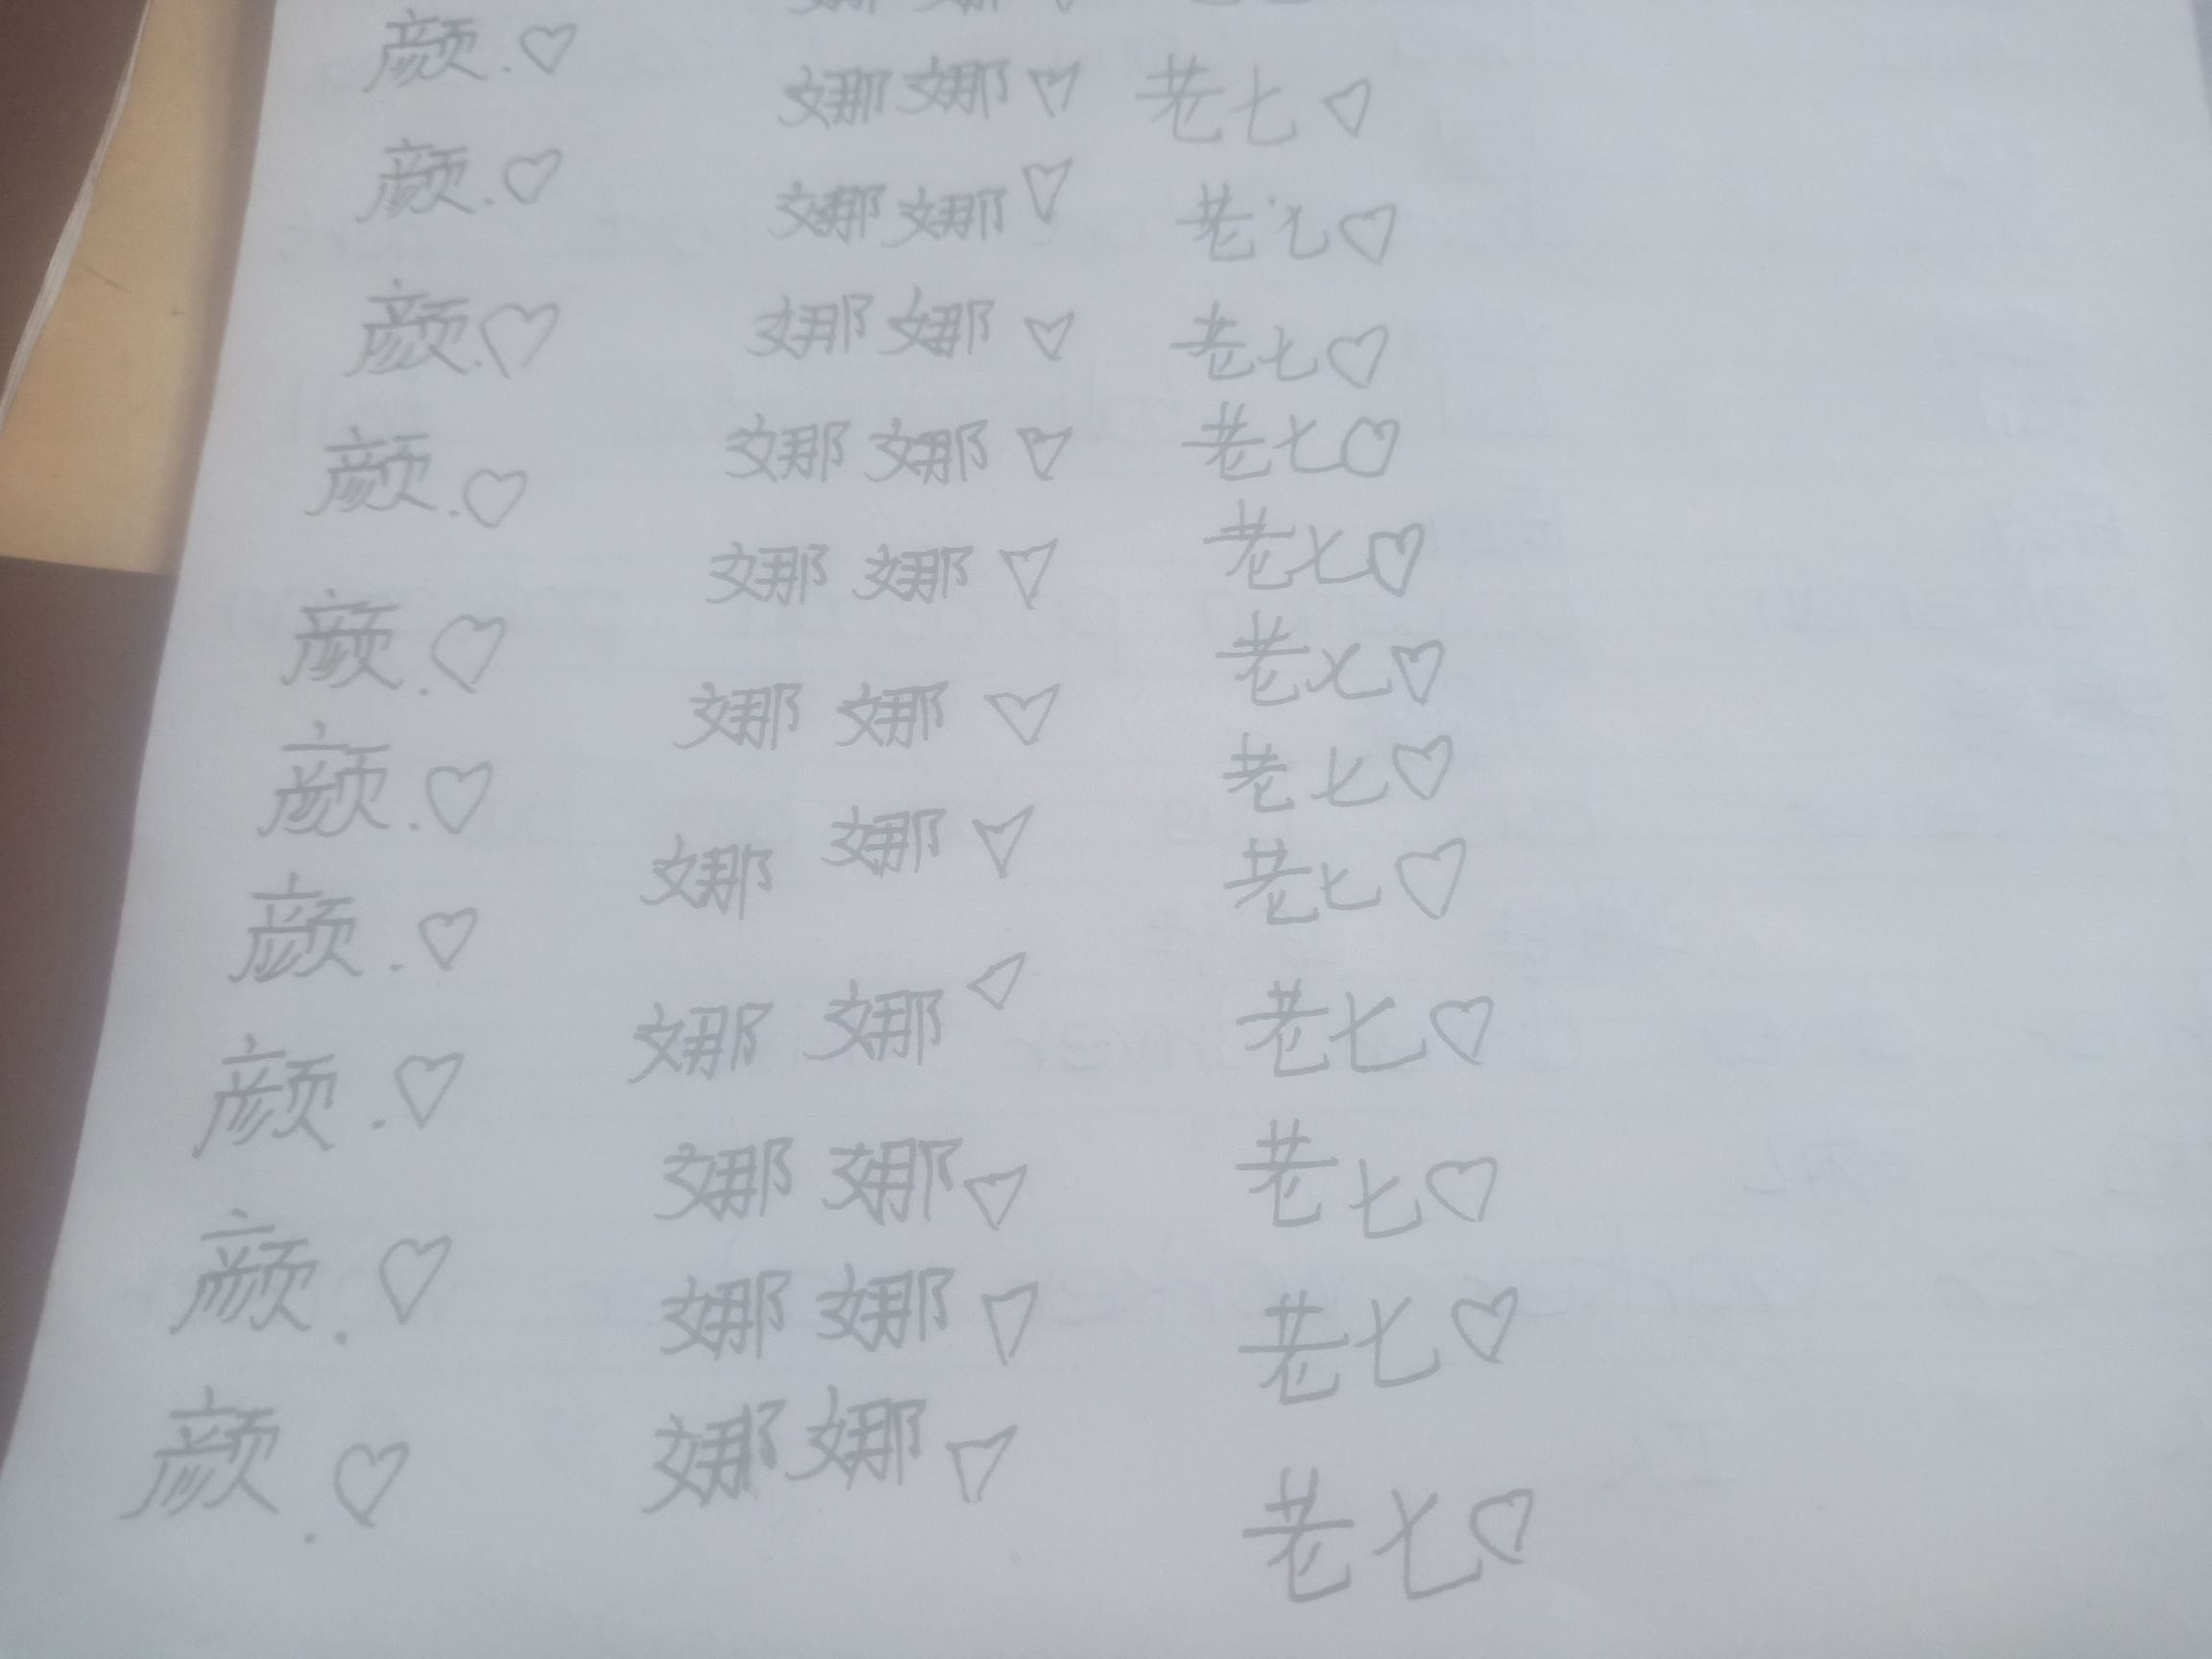 颜.♡
颜.♡
颜.♡
颜.♡
颜.♡
颜.♡
颜.♡
颜.♡
颜.♡
颜.♡
娜娜♡
娜娜♡
娜娜♡
娜娜♡
娜娜♡
娜娜♡
娜娜♡
娜娜♡
娜娜♡
娜娜♡
娜娜♡
老七♡
老七♡
老七♡
老七♡
老七♡
老七♡
老七♡
老七♡
老七♡
老七♡
老七♡
老七♡